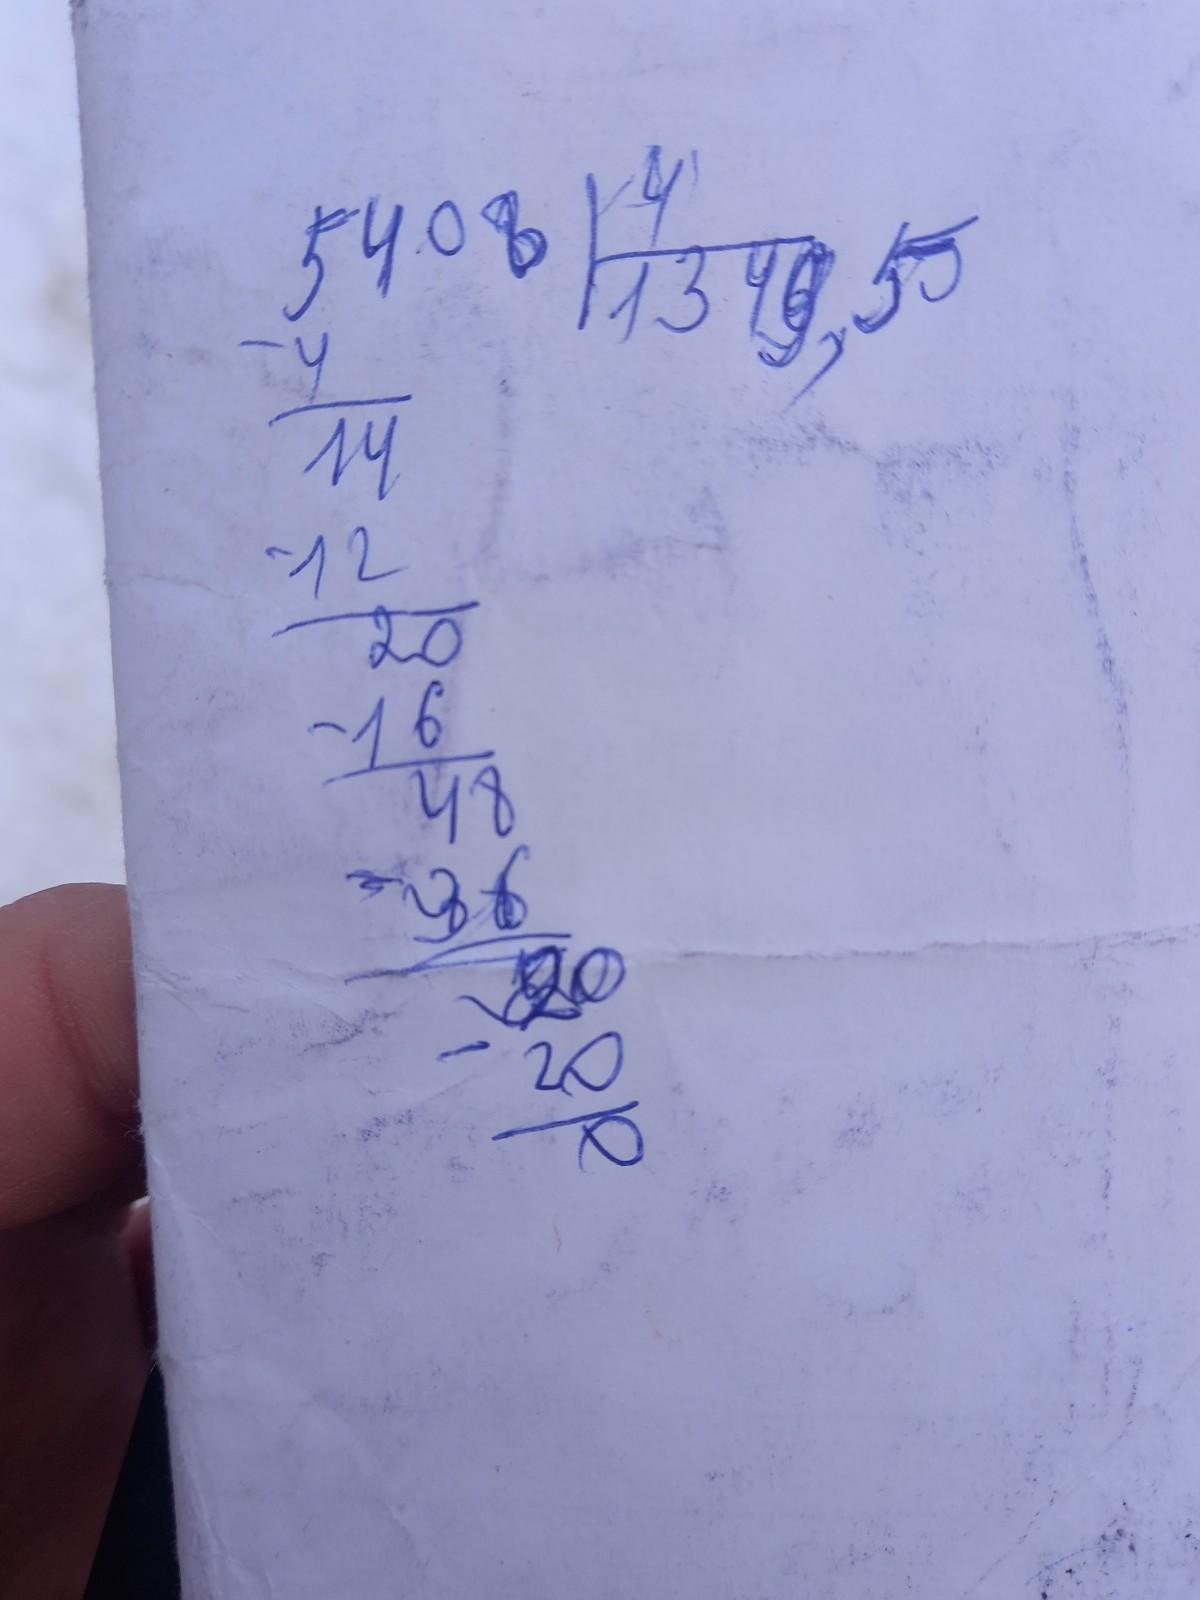 5408 | 4
1349,55
-4
14
-12
20
-16
48
-36
20
-20
0